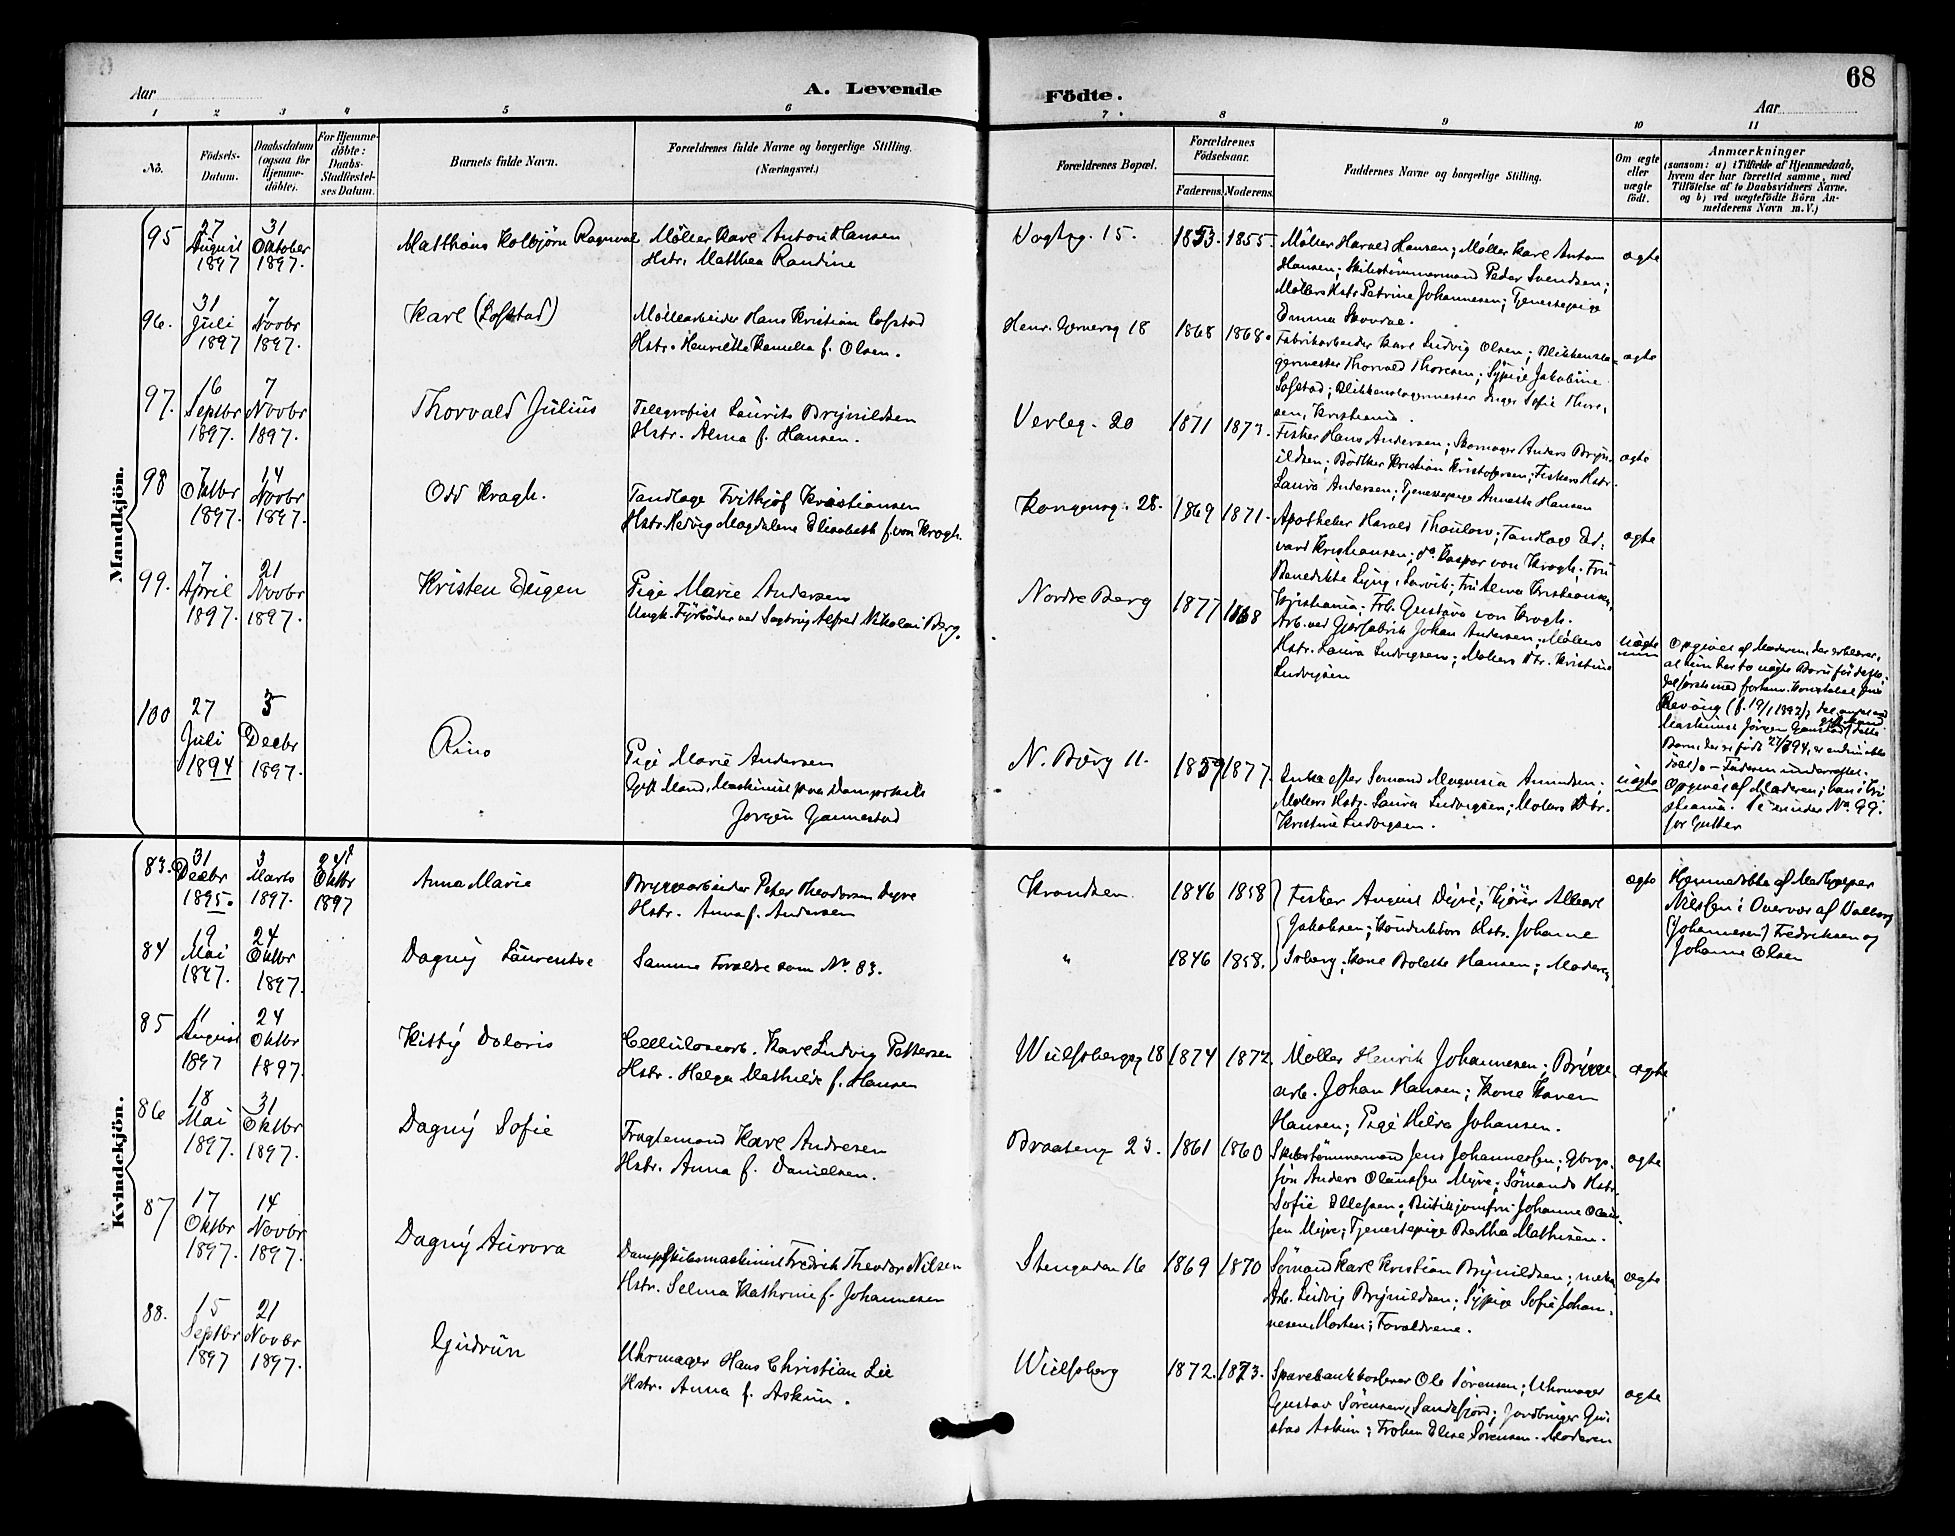 68
Aar
A. Levende
Födte.
Aar
1 2 3 4 5 6 7 8 9 10 11
No.
Födsels-
Datum.
Daabsdatum
(ogsaa for
Hjemme-
döbte).
For Hjemme-
döbte:
Daabs-
Stadfæstel-
ses Datum.
Barnets fulde Navn.
Forældrenes fulde Navne og borgerlige Stilling.
(Næringsvei.)
Forældrenes Bopæl.
Forældrenes
Födselsaar.
Faderens. Moderens.
Faddernes Navne og borgerlige Stilling.
Om ægte
eller
uægte
födt.
Anmærkninger
(saasom: a) i Tilfælde af Hjemmedaab,
hvem der har forrettet samme, med
Tilföielse af to Daabsvidners Navne.
og b) ved uægtefödte Börn An-
melderens Navn m. V.)
Mandkjön.
95
27
August
1897
31
Oktober
1897.
Matthæus Kolbjörn Ragnval
Möller Karl Anton Hansen
Hstr. Matthea Randine
1853. 1855.
Möller Harald Hansen; Möller Karl Anton
Hansen; Skibstömmermand Peder Svendsen;
Möllers Hstr Petrine Johannesen; Tjenestepige
Emma
ægte
96.
31
Juli
1897
7
Novbr
1897.
Karl (Lofstad)
Möllearbeider Hans Kristian Lofstad
Hstr. Henriette Kamilla f. Olsen.
18
1868 1868.
Fabrikarbeider Karl Ludvig Olsen; Blikkensla=
germester Thorvald Thoresen; Sypige Jakobine
Lofstad; Blikkenslagermester Inger Sofie Thore,
sen, Kristiania.
ægte
97.
16
Septbr
1897.
7
Novbr
1897.
Thorvald Julius
Telegrafist Laurits Brynildsen
Hstr. Alma f. Hansen.
Verleg. 20
1871 1873.
Fisker Hans Andersen; Skomager Anders Bryn=
ildsen; Bödker Kristian Kristofersen; Fiskers Hstr.
Laura Andersen; Tjenestepige Annette Hansen
ægte
98
7
Oktbr
1897.
14
Novbr
1897.
Odd Kragh.
Tandlæge Frithjof Kristiansen
Hstr. Hedvig Magdalene Elisabeth f. von Krogh.
Kongensg. 28.
1869 1871.
Apotheker Harald Thaulow; Tandlæge Ed=
vard Kristiansen; do. Kaspar von Krogh; Fru
Benedikte Ljung, Larvik; Fru Alma Kristiansen,
Kristiania; Frk. Gustava von Krogh.
ægte
99.
7
April
1897.
21
Novbr
1897.
Kristen Eugen
Pige Marie Andersen
Ungk. Fyrböder ved Sagbrug Alfred Nikolai Berg.
Nordre Berg
1877 1868
Arb. ved Johan Andersen; Möllers
Hstr. Laura Ludvigsen; Möllers Dtr. Kristine
Ludvigsen
uægte
Opgives af Moderen, der erklærer,
at hun har to uægte Börn för dette,
100
27
Juli
1894
5
Decbr
1897.
Rino
Pige Marie Andersen
Gift Mand, Maskinist paa Dampskib
Jörgen Gannestad
N. Bjerg 11.
1859 1877.
Enke efter Sömand Amundsen;
Möllers Hstr. Laura Ludvigsen; Möllers Dtr.
Kristine Ludvigsen.
uægte
Opgives af Moderen; han i Kri
stiania. Se under No 99.
for Gutter
Kvindekjön.
83.
31
Decbr
1895.
3
Marts
1897.
24
Oktbr
1897
Anna Marie
Bryggearbeider Peter Theodorsen Dyre
Hstr. Anna f. Andersen
1846 1858
Fisker August Dyre; Kjörer Albert
Jakobsen; Konduktörs Hstr. Johanne
ægte
Hjemmedöbt af Madhjælper
Nilssen i Overvær af Valborg
(Johannesen) Fredriksen og
Johanne Olsen
84
19
Mai
1897.
24
Oktbr
1897.
Dagny Laurentse
Samme Forældre som No. 83.
"
1846 1858.
Solberg; Kone Bolette Hansen; Moderen
85
11
August
1897
24
Oktbr
1897.
Kitty Doloris
Cellulosearb. Karl Ludvig Pettersen
Hstr. Helga Mathilde f. Hansen
Wulfsbergsg 18
1874 1872.
Möller Henrik Johannesen; Brygge=
arb. Johan Hansen; Kone Karen
Hansen; Pige Hilda Johansen.
ægte
86
18
Mai
1897.
31
Oktbr
1897.
Dagny Sofie
Fragtemand Karl Andresen
Hstr. Anna f. Danielsen.
Braateng 23.
1861 1860
Skibstömmermand Jens Johannessen;
Anders Olaussen Myre; Sömands Hstr.
Sofie Ellefsen; Butikjomfru Johanne Olaus=
sen Myre; Tjenestepige Bertha Mathisen.
ægte
87
17
Oktbr
1897.
14
Novbr
1897.
Dagny Aurora
Dampskibsmaskinist Fredrik Theodor Nilsen
Hstr. Selma Kathrine f. Johannesen
Stengaden 16
1869 1870
Sömand Karl Kristian Brynildsen; mek.
Arb. Ludvig Brynildsen; Sypige Sofie Johan-
nesen Horten; Forældrene.
ægte
88.
15
Septbr
1897
21
Novbr
1897.
Gudrun
Uhrmager Hans Christian Lie
Hstr. Anna f. Askim.
Wulfsberg
1872. 1873.
Sparebankkasserer Ole Sörensen; Uhrmager
Gustav Sörensen, Sandefjord; Jordbruger Gu=
stav Askim; Fröken Elise Sörensen. Moderen
ægte